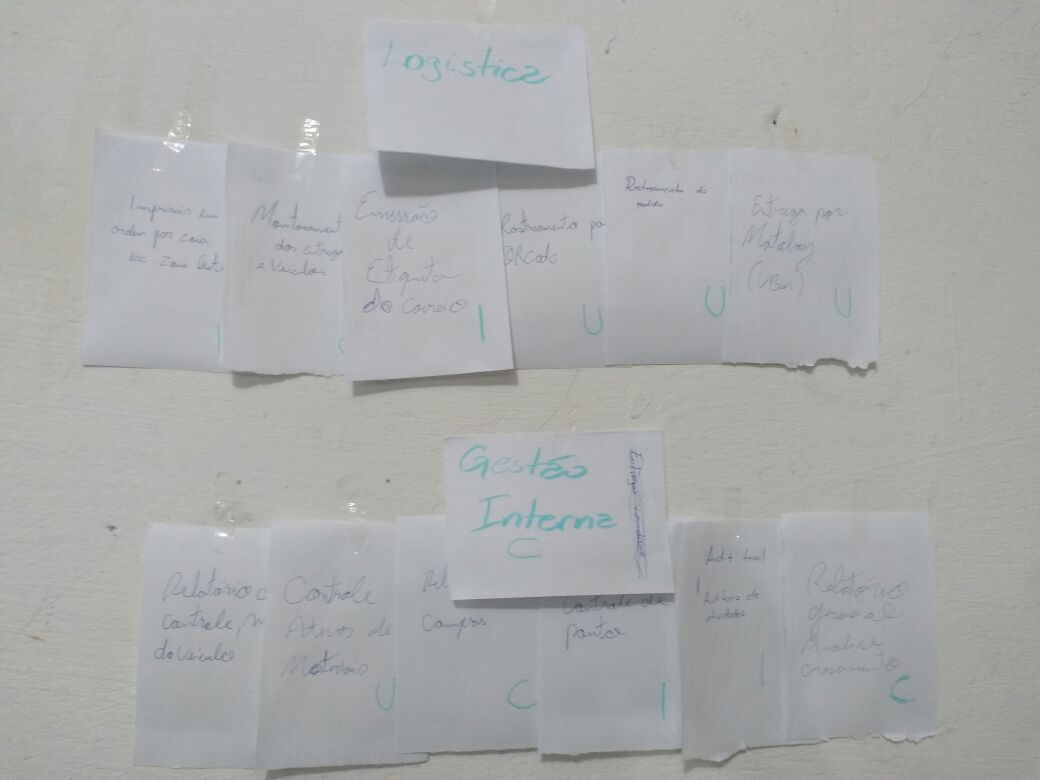 Logistica
Imprimir em
ordem por zona
ex: zona leste
I
Monitorament
dos entrega
e Veiculos
Emissão
de
Etiqueta
do Correio
I
Rastreamento po
QRCode
U
Rastreamento do
pedido
U
Entrega por
Motoboy
(Uber)
U
Gestão
Interna
C
Relatório c
controle, m
do Veiculo
Controle
Ativos de
Materiais
U
Rel
Compras
C
Controle de
ponto
I
Audit trail
I
de
I
Relatório
gerencial
Análise
C